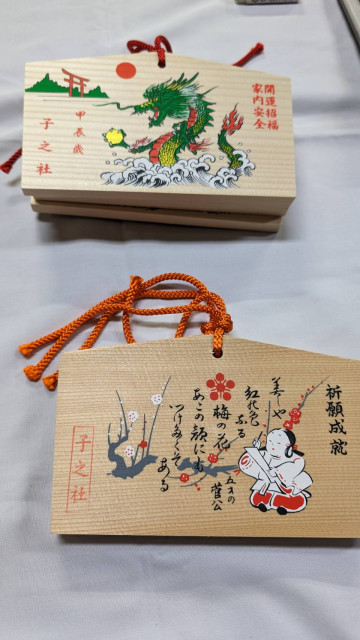 開運招福
家内安全
甲辰歳
子之社
祈願成就
美しや
紅の色
なる
梅の花
あこの顔にも
つけたくぞ
ある
五才の
菅公
子之社